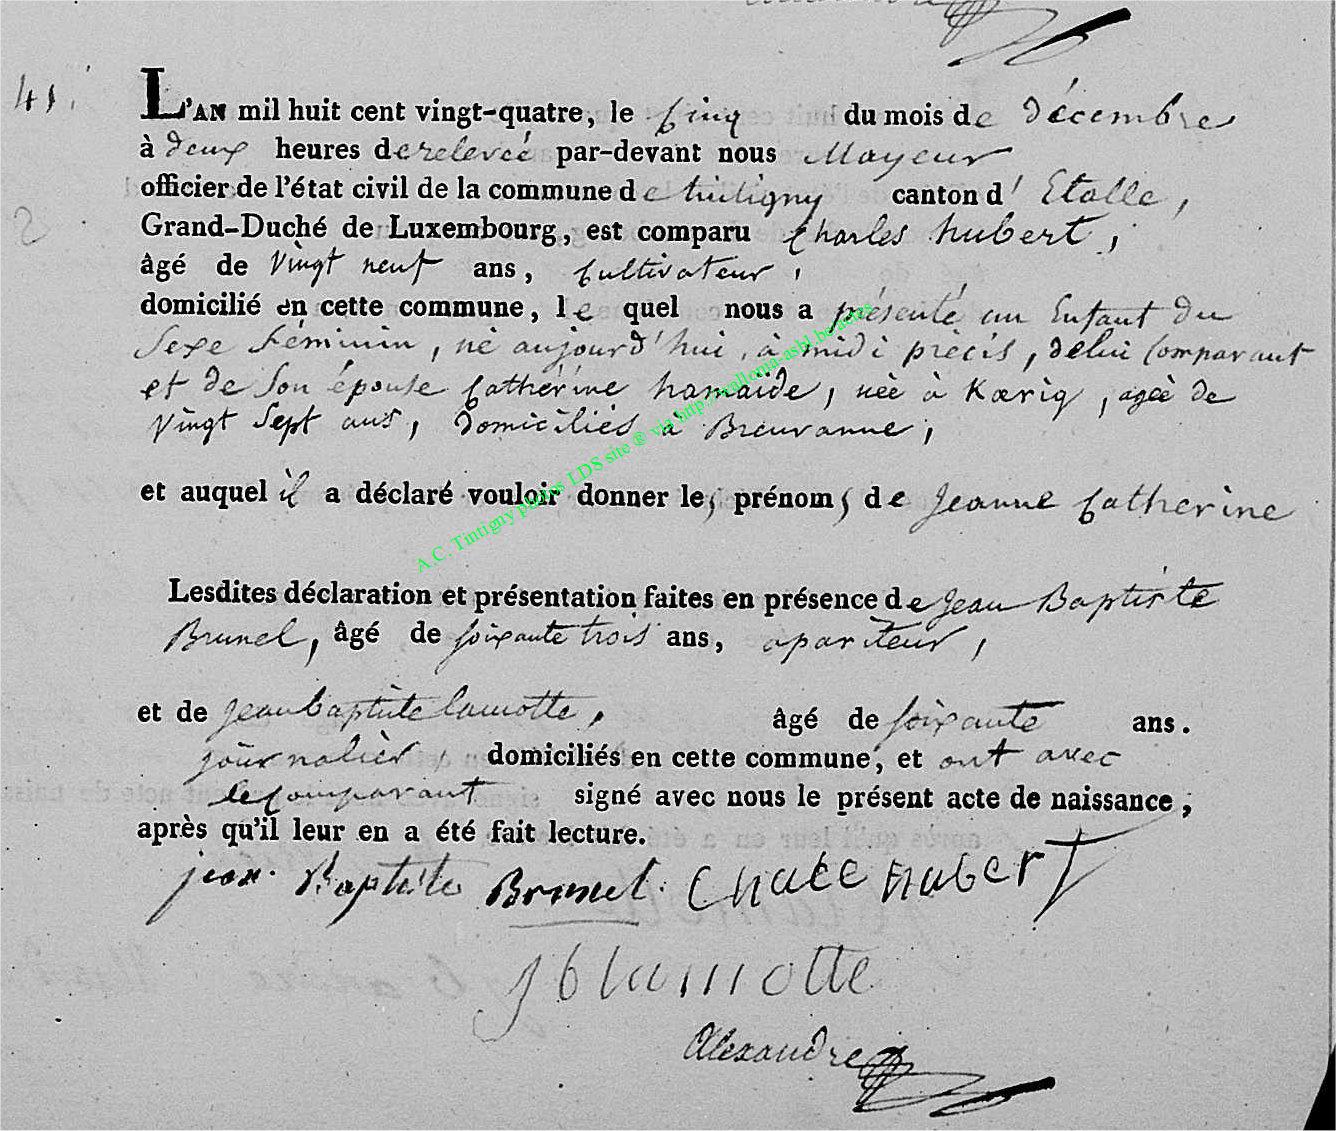 41.
L'AN mil huit cent vingt-quatre, le Cinq du mois de Décembre
à deux heures de relevée par-devant nous Mayeur
officier de l'état civil de la commune de tintigny canton d' Etalle,
Grand-Duché de Luxembourg, est comparu Charles hubert,
âgé de Vingt neuf ans, Cultivateur,
domicilié en cette commune, le quel nous a présenté un Enfant du
Sexe féminin, né aujourd'hui, à midi précis, de lui Comparant
et de Son épouse Cathérine hamaide, née à Kœrig, agée de
Vingt Sept ans, Domiciliés à Breuvanne,
et auquel il a déclaré vouloir donner les prénoms de Jeanne Catherine
Lesdites déclaration et présentation faites en présence de Jean Baptiste
Brunel, âgé de soixante trois ans, apariteur,
et de jean baptiste lamotte, âgé de soixante ans.
journalier, domiciliés en cette commune, et ont avec
le Comparant signé avec nous le présent acte de naissance,
après qu'il leur en a été fait lecture.
jean. Baptiste Brunel. Chale Hubert
J b lamotte
Alexandre
A.C. Tintigny photos LDS site ® via http://wallonia-asbl.be/actes